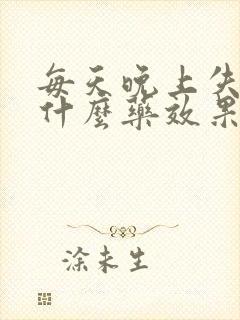 每天晚上失
什麼藥效果
涂未生